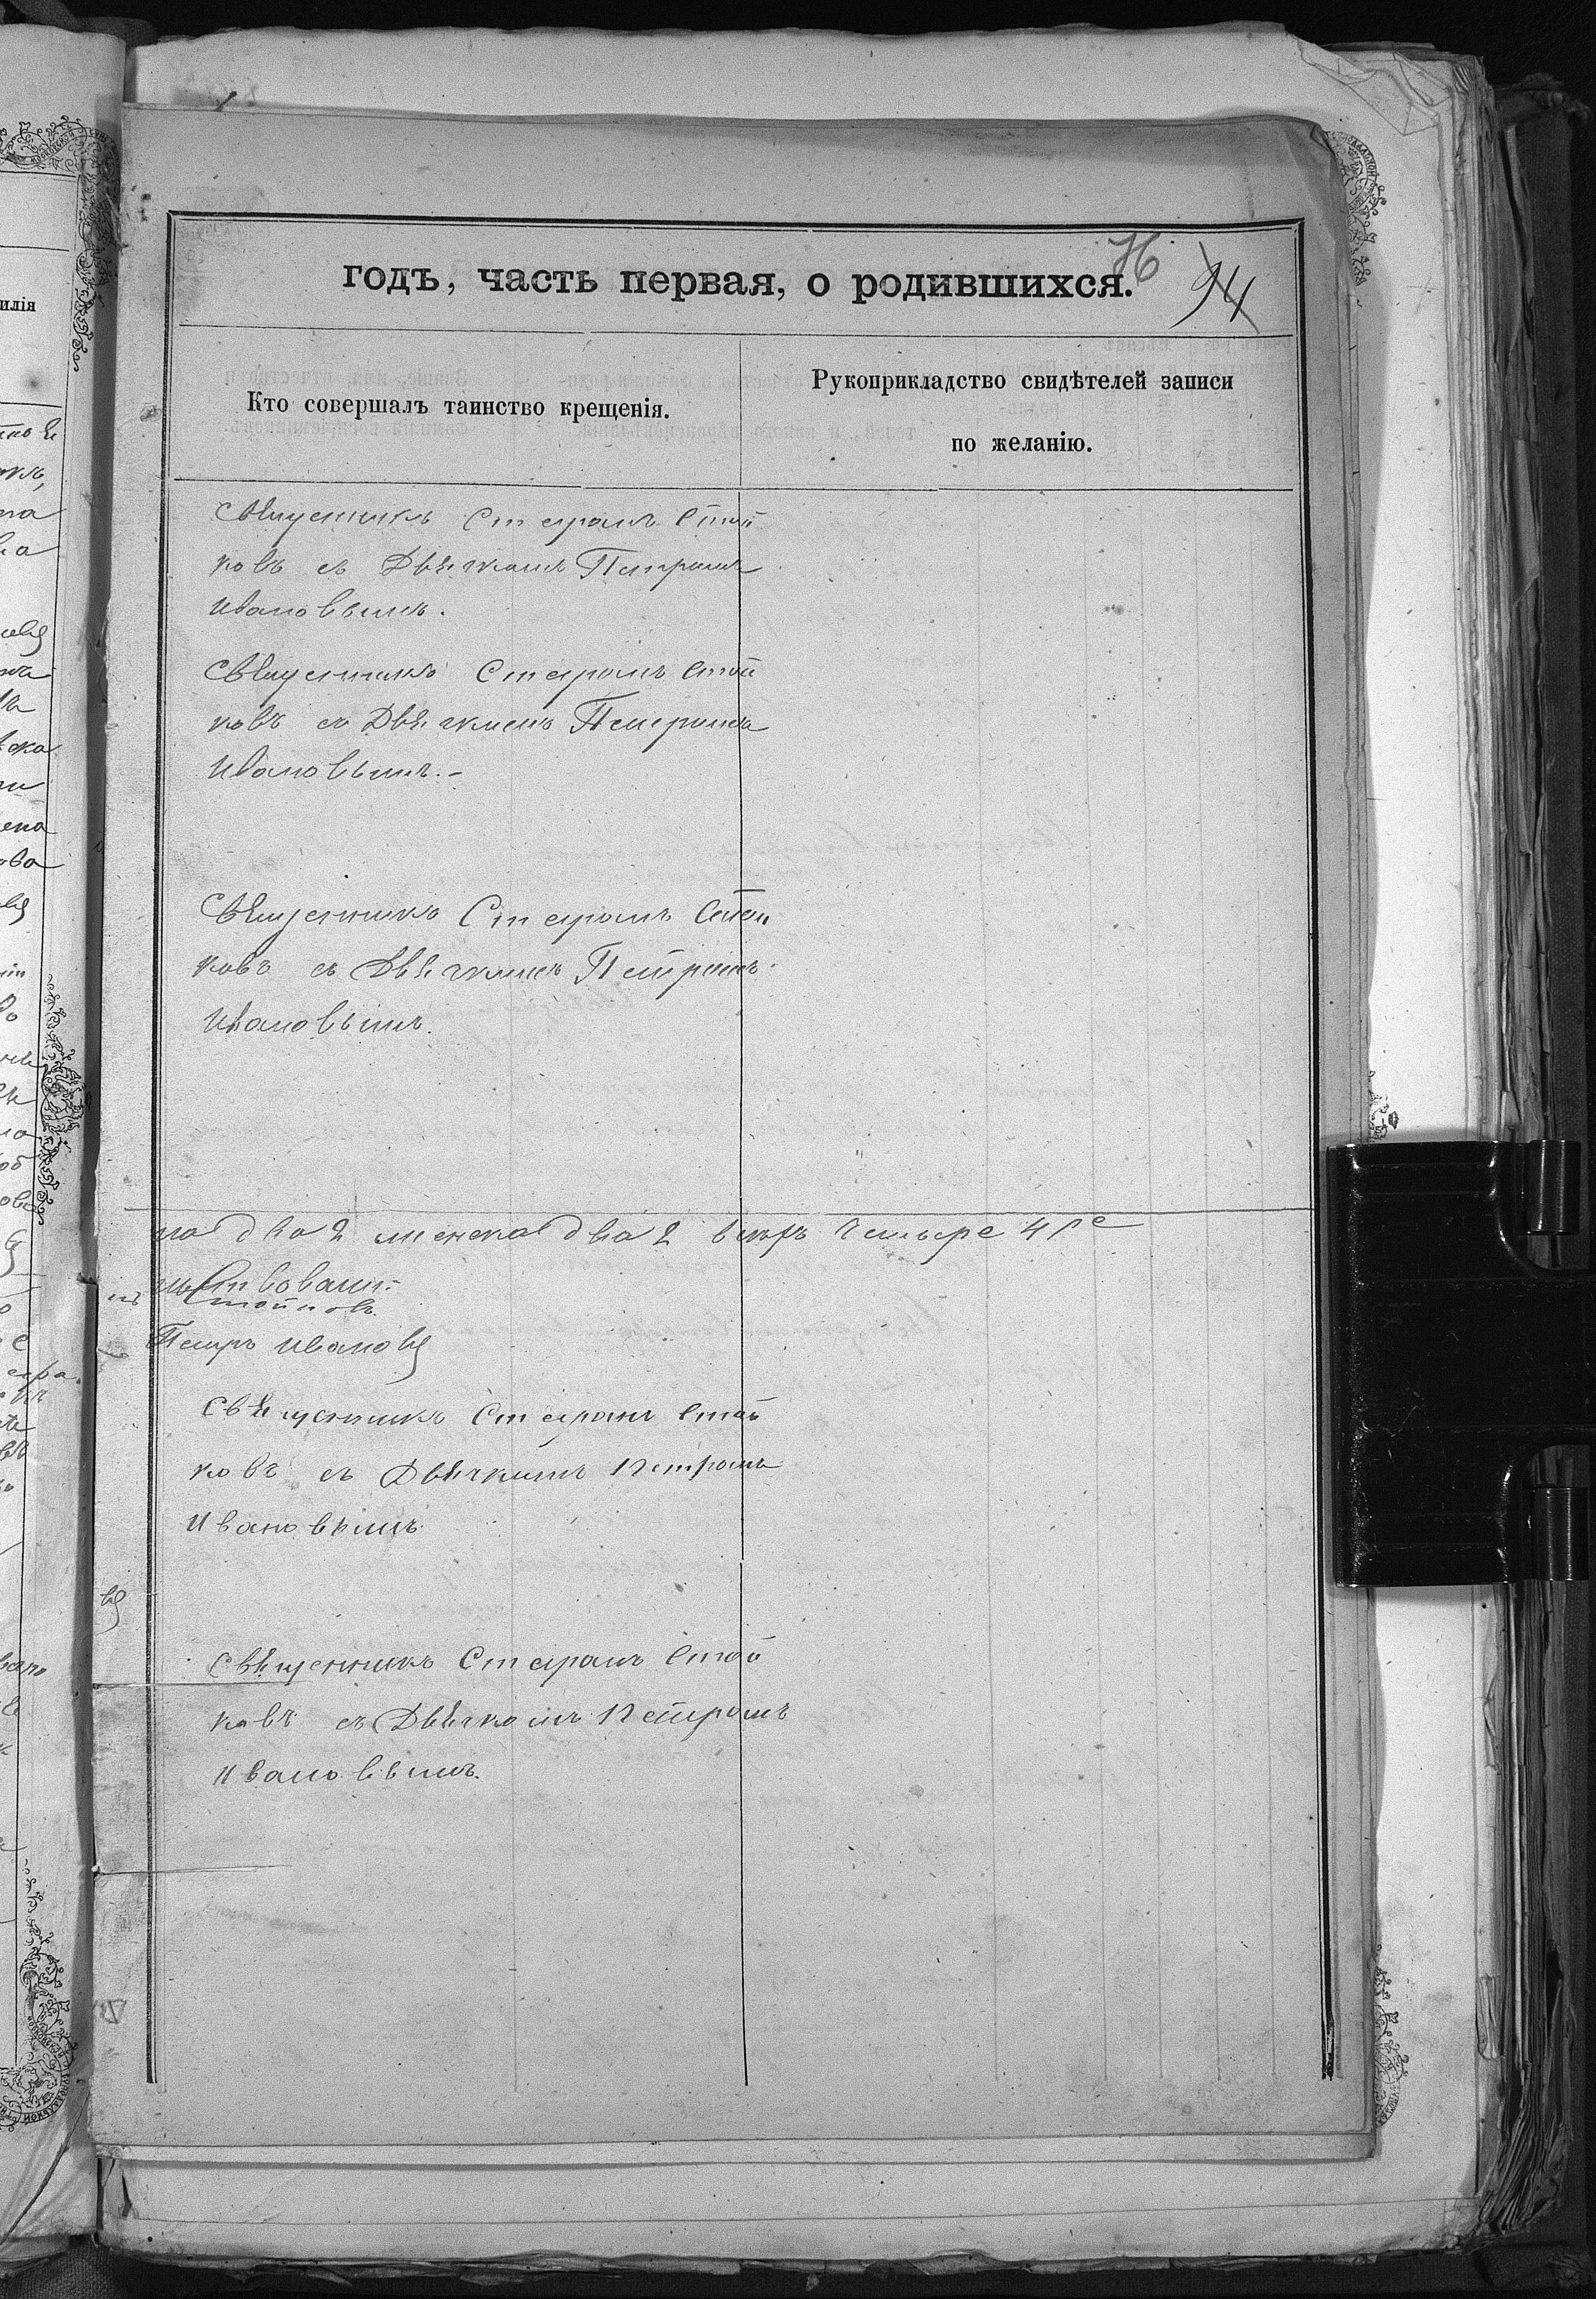 годъ, часть первая, о родившихся.
94
Кто совершалъ таинство крещенія.
Рукоприкладство свидѣтелей записи
по желанію.
Свѣщенникъ Стефанъ Стой
ковъ съ Дьячкомъ Петромъ
Ивановымъ.
Свѣщенникъ Стефанъ Стой
ковъ съ Дьячкомъ Петромъ
Ивановымъ.-
Свѣщенникъ Стефанъ Стой
ковъ съ Дьячкомъ Петромъ
Ивановымъ.
два 2 женска два 2 всѣхъ четыре 4
Стойковъ
Петръ Ивановъ
Свѣщенникъ Стефанъ Стой
ковъ съ Дьячкомъ Петромъ
Ивановымъ
Свѣщенникъ Стефанъ Стой
ковъ съ Дьячкомъ Петромъ
Ивановымъ.